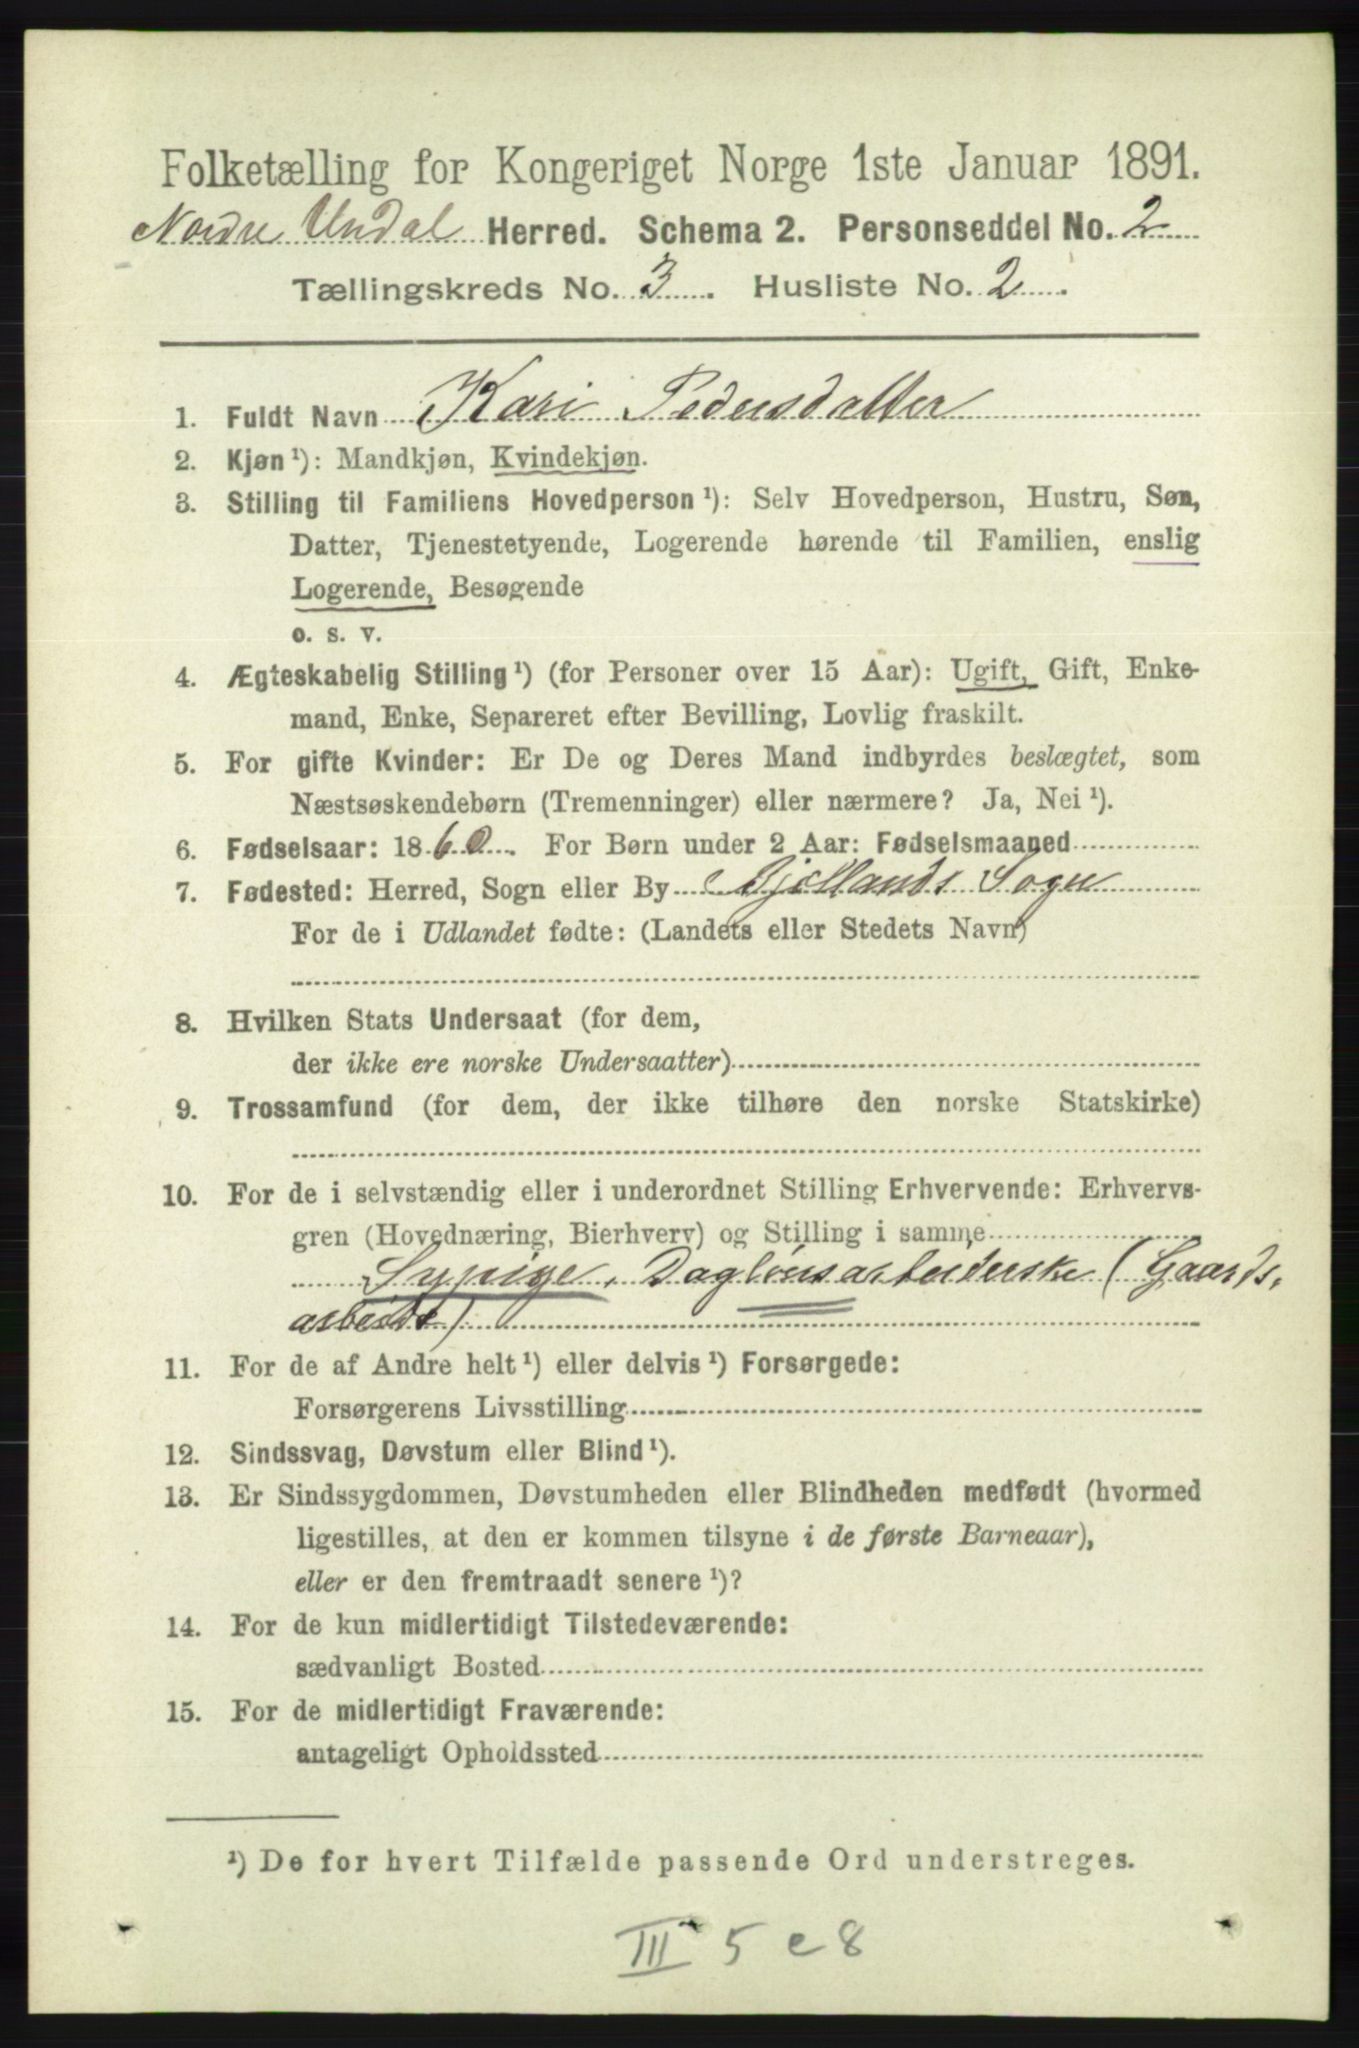 Folketælling for Kongeriget Norge 1ste Januar 1891.
Nordre Undal Herred. Schema 2. Personseddel No. 2
Tællingskreds No. 3. Husliste No. 2.
1. Fuldt Navn Kari Pedersdatter
2. Kjøn ¹): Mandkjøn, Kvindekjøn.
3. Stilling til Familiens Hovedperson ¹): Selv Hovedperson, Hustru, Søn,
Datter, Tjenestetyende, Logerende hørende til Familien, enslig
Logerende, Besøgende
o. s. v.
4. Ægteskabelig Stilling ¹) (for Personer over 15 Aar): Ugift, Gift, Enke-
mand, Enke, Separeret efter Bevilling, Lovlig fraskilt.
5. For gifte Kvinder: Er De og Deres Mand indbyrdes beslægtet, som
Næstsøskendebørn (Tremenninger) eller nærmere? Ja, Nei ¹).
6. Fødselsaar: 1860. For Børn under 2 Aar: Fødselsmaaned
7. Fødested: Herred, Sogn eller By Bjellands Sogn
For de i Udlandet fødte: (Landets eller Stedets Navn)
8. Hvilken Stats Undersaat (for dem,
der ikke ere norske Undersaatter)
9. Trossamfund (for dem, der ikke tilhøre den norske Statskirke)
10. For de i selvstændig eller i underordnet Stilling Erhvervende: Erhvervs-
gren (Hovednæring, Bierhverv) og Stilling i samme
Sypige, Daglönsarbeiderske (Gaards-
arbeide)
11. For de af Andre helt ¹) eller delvis ¹) Forsørgede:
Forsørgerens Livsstilling
12. Sindssvag, Døvstum eller Blind ¹).
13. Er Sindssygdommen, Døvstumheden eller Blindheden medfødt (hvormed
ligestilles, at den er kommen tilsyne i de første Barneaar),
eller er den fremtraadt senere ¹)?
14. For de kun midlertidigt Tilstedeværende:
sædvanligt Bosted
15. For de midlertidigt Fraværende:
antageligt Opholdssted
¹) De for hvert Tilfælde passende Ord understreges.
III 5 e 8